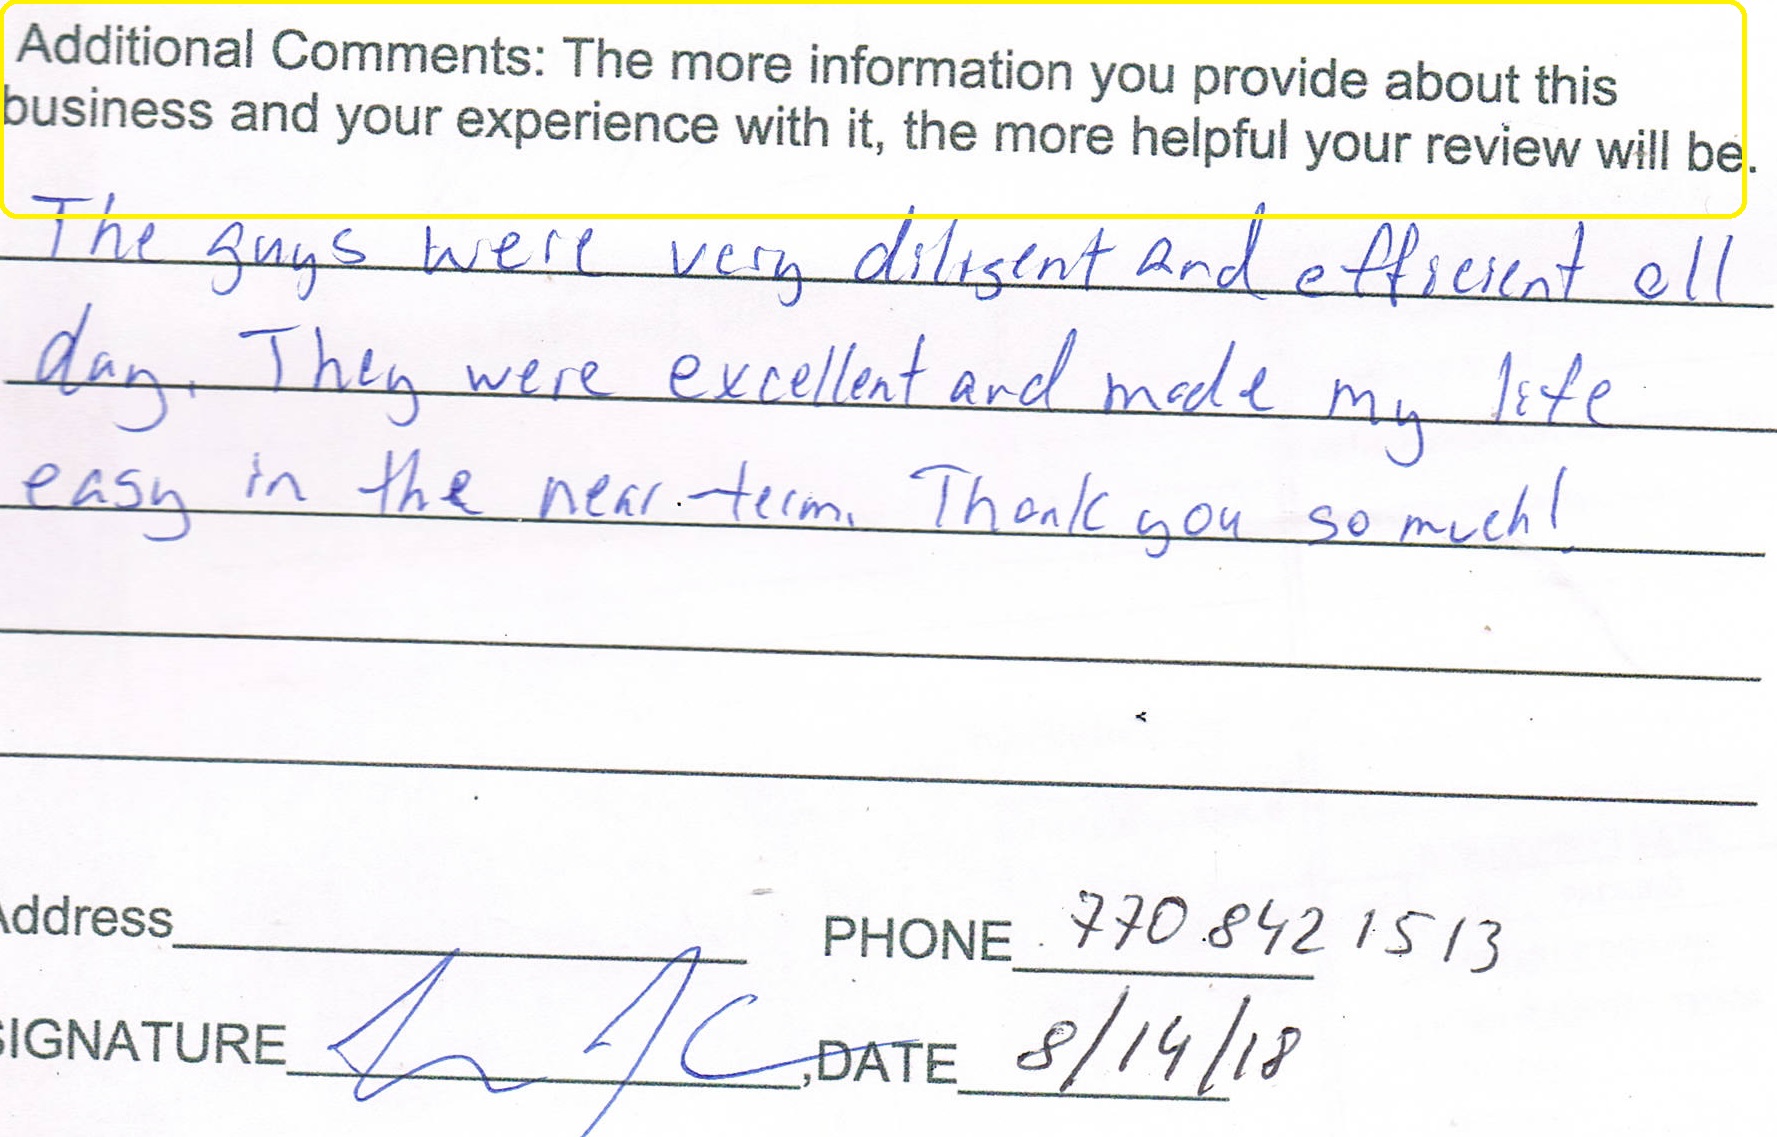 Additional Comments: The more information you provide about this
business and your experience with it, the more helpful your review will be.
The guys were very diligent and efficient all
day. They were excellent and made my life
easy in the near-term. Thank you so much!
Address PHONE 770 842 1513
SIGNATURE ,DATE 8/14/18